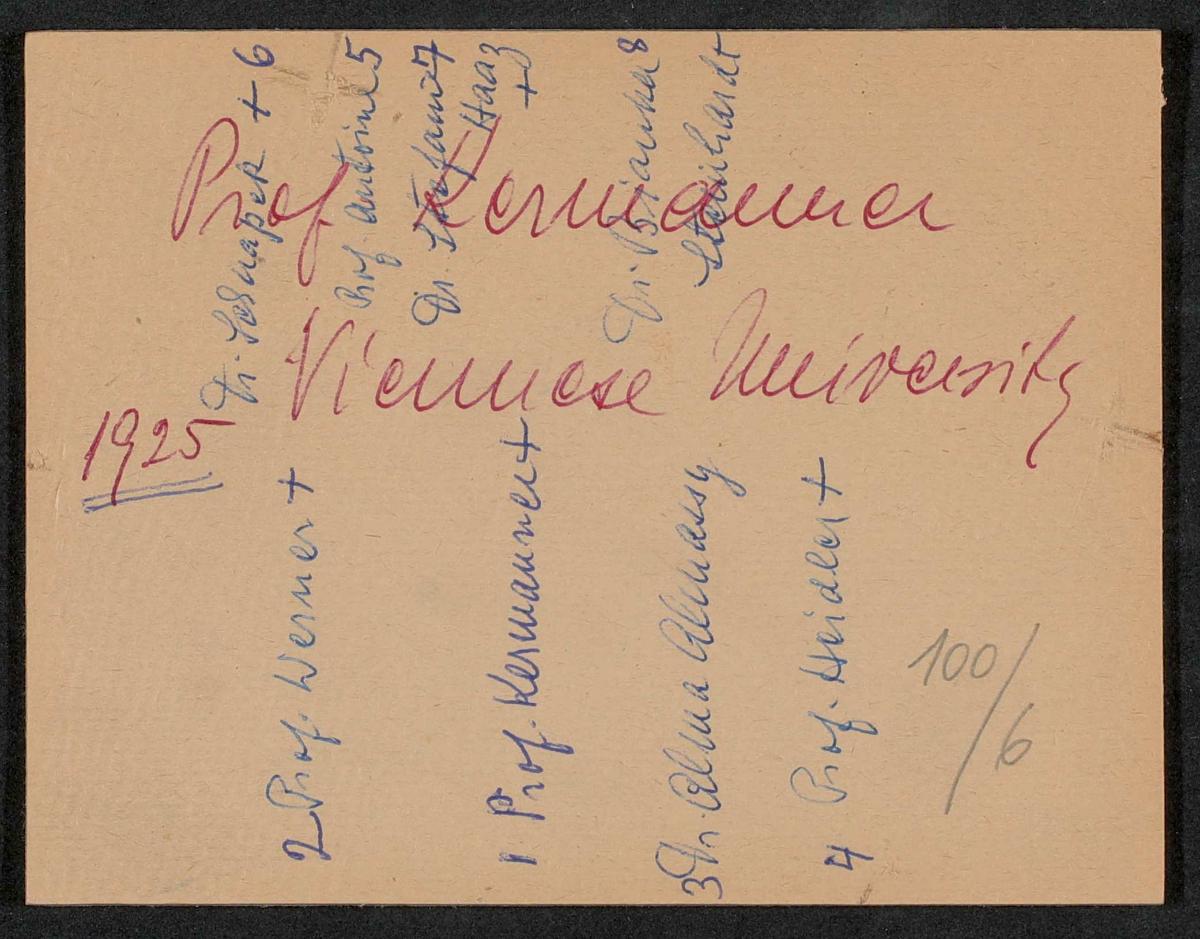 Prof. Kermauner
Viennese University
1925
2 Prof. Werner +
1 Prof. Kermauner +
3 Dr. Alma Almassy
4 Prof. Heidler +
Dr. Schnapek + 6
Prof. Antoine 5
Dr. Stefani 7
Haaz
+
Dr. Bianka 8
Steinhardt
100/6